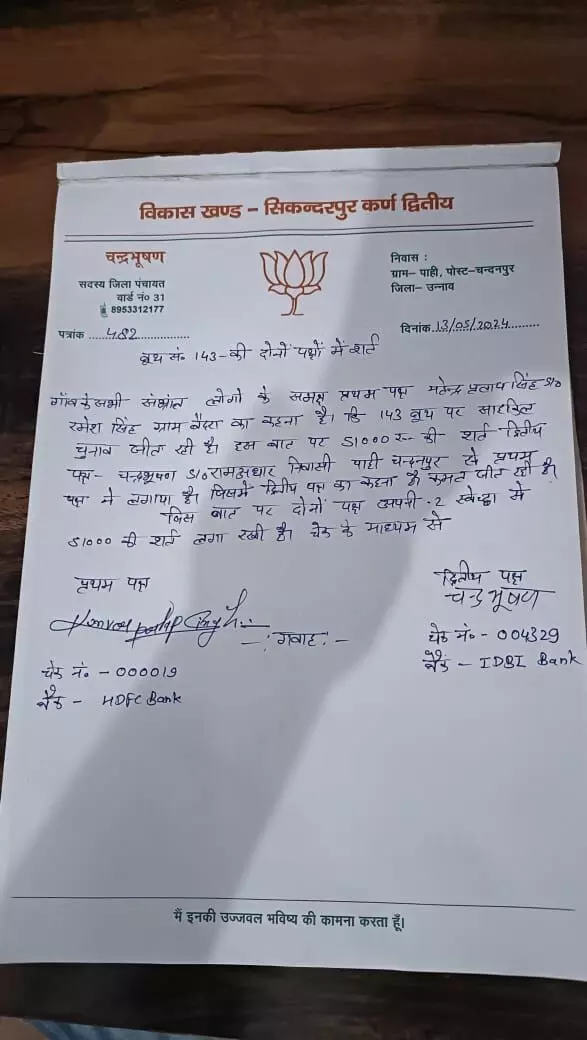 विकास खण्ड – सिकन्दरपुर कर्ण द्वितीय
चन्द्रभूषण
सदस्य जिला पंचायत
वार्ड नं० 31
8953312177
निवास :
ग्राम– पाही, पोस्ट–चन्दनपुर
जिला– उन्नाव
पत्रांक ....482....
दिनांक.13/05/2024.......
बूथ सं. 143-की दोनों पक्षों में शर्त
गाँव के सभी संभ्रांत लोगो के समक्ष प्रथम पक्ष प्रताप सिंह S/o
रमेश सिंह ग्राम का कहना है। कि 143 बूथ पर साइकिल
चुनाव जीत रही है। इस बात पर 51000 रू० की शर्त द्वितीय
पक्ष- चन्द्रभूषण S/o रामआधार निवासी पाही चन्दनपुर से प्रथम
पक्ष ने लगाया है। जिसमें द्वितीय पक्ष का कहना है कमल जीत रही है।
जिस बात पर दोनों पक्ष अपनी-2 स्वेच्छा से
51000 की शर्त लगा रखी है। चेक के माध्यम से
प्रथम पक्ष
द्वितीय पक्ष
चन्द्रभूषण
Singh
-: गवाह :-
चेक नं० - 004329
बैंक - IDBI Bank
चेक नं० - 000019
बैंक - HDFC Bank
मैं इनकी उज्जवल भविष्य की कामना करता हूँ।